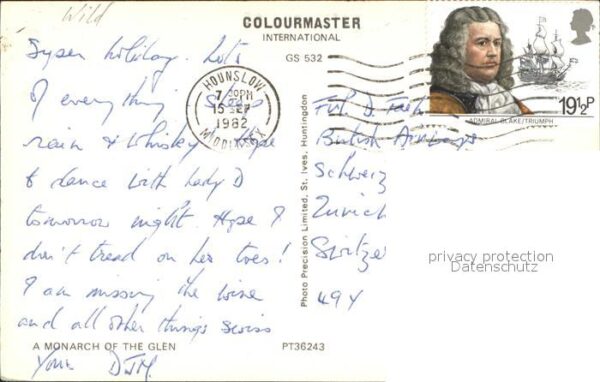 Wild
COLOURMASTER
INTERNATIONAL
GS 532
HOUNSLOW
7 30PM
15 SEP
1982
MIDDLESEX
19½P
ADMIRAL BLAKE/TRIUMPH
Super holiday. Lots
of everything
rain & whisky. Hope
to dance with Lady D
tomorrow night. Hope I
don't tread on her toes!
I am missing the wine
and all other things swiss
Yours DJM.
D.
British Airways
Schweiz
Zurich
Switze
49Y
Photo Precision Limited, St. Ives, Huntingdon
privacy protection
Datenschutz
A MONARCH OF THE GLEN
PT36243